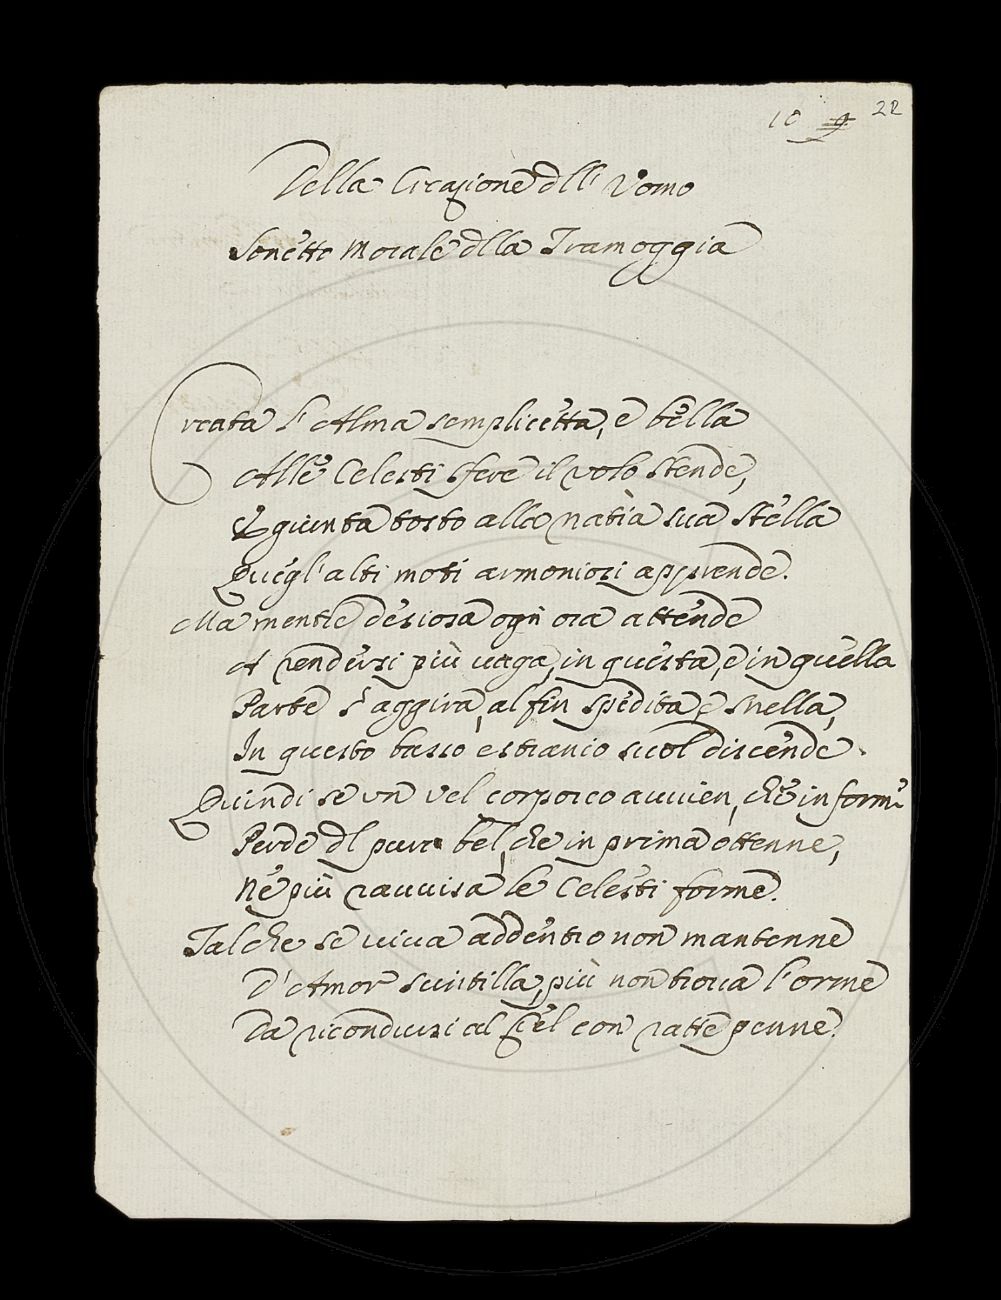 10 9 22
Della Creazione dll' Vomo
Sonetto Morale dlla Tramoggia
Creata l'Alma semplicetta, e bella
Alle Celesti sfere il volo stende,
E giunta tosto alla natia sua stella
Quegl'alti moti armoniosi apprende.
Ma mentre desiosa ogn ora attende
A rendersi più vaga, in questa, e in quella
Parte s'aggira, al fin spedita, e snella,
In questo basso estranio suol discende.
Quindi se vn vel corporeo auuien, che informi
Perde dl puro bel, che in prima ottenne,
Nè più rauuisa le Celesti forme.
Talche se uiua addentro non mantenne
D'Amor scintilla, più non troua l'orme
Da ricondursi al Ciel con ratte penne.